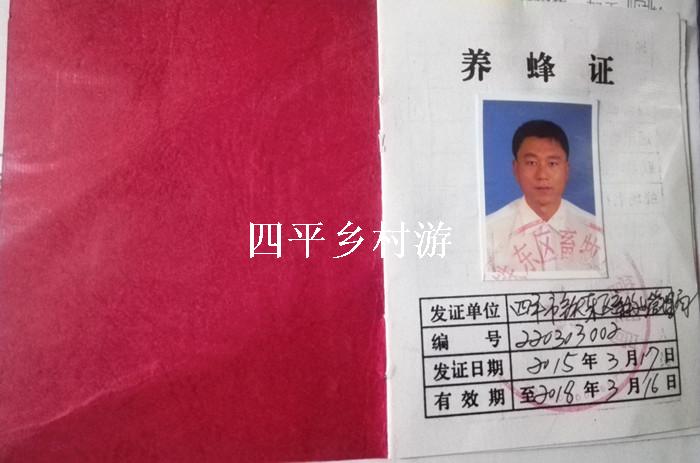 养 蜂 证
东区畜牧
四平乡村游
发证单位 四平市铁东区畜牧业管理局
编 号 220303002
发证日期 2015年3月17日
有效期 至2018年3月16日